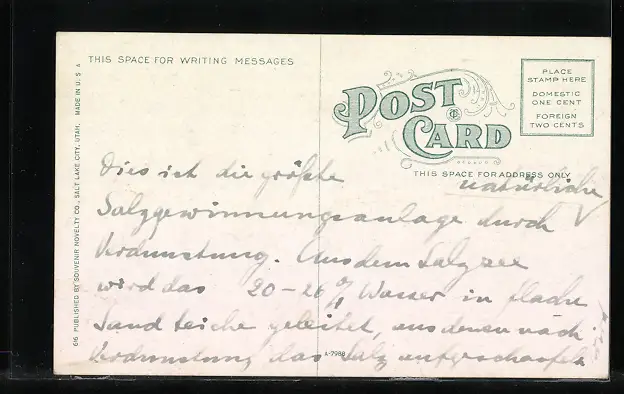 THIS SPACE FOR WRITING MESSAGES
POST CARD
PLACE
STAMP HERE
DOMESTIC
ONE CENT
FOREIGN
TWO CENTS
THIS SPACE FOR ADDRESS ONLY
616 PUBLISHED BY SOUVENIR NOVELTY CO., SALT LAKE CITY, UTAH. MADE IN U.S.A
Dies ist die größte natürliche
Salzgewinnungsanlage durch
Verdunstung. Aus dem Salzsee
wird das 20-26 % Wasser in flache
Sandteiche geleitet, aus denen nach
Verdunstung das Salz aufgeschaufelt
A-7988